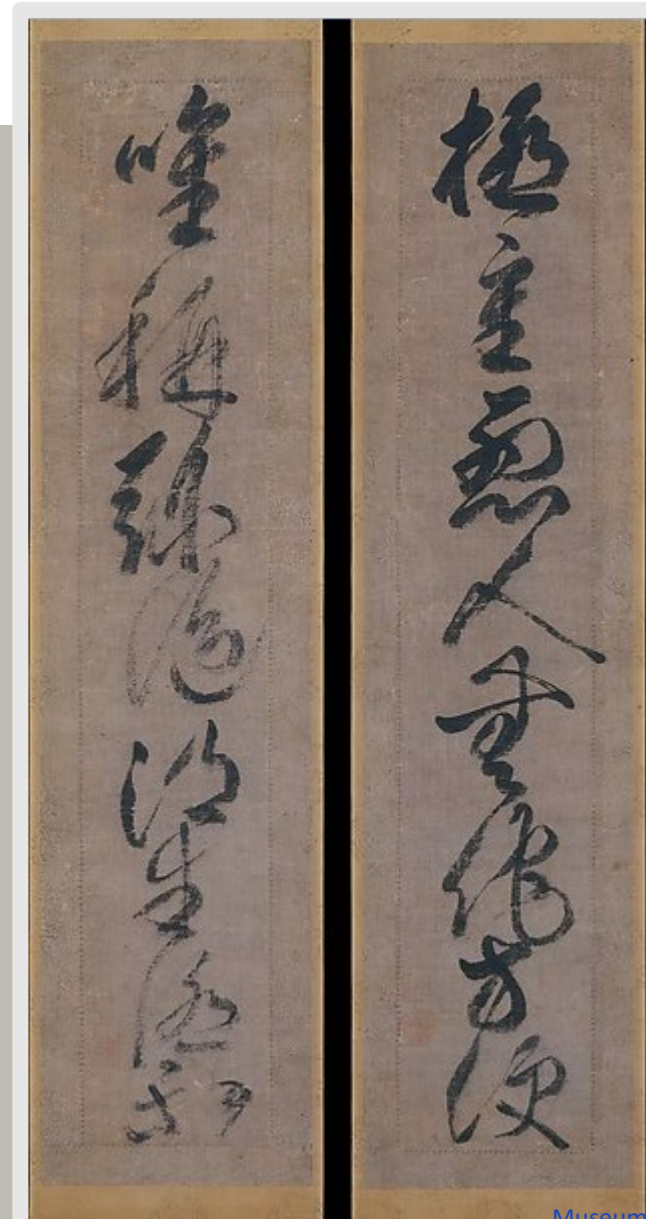 極重悪人無他方便
唯称弥陀得生極楽
Museum